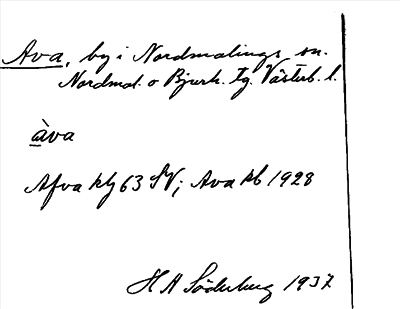 Ava, by i Nordmalings sn.
Nordmal. o Bjurh. tg. Västerb. l.
àva
Afva klg 63 SV; Ava kb 1928
H A Söderberg 1937